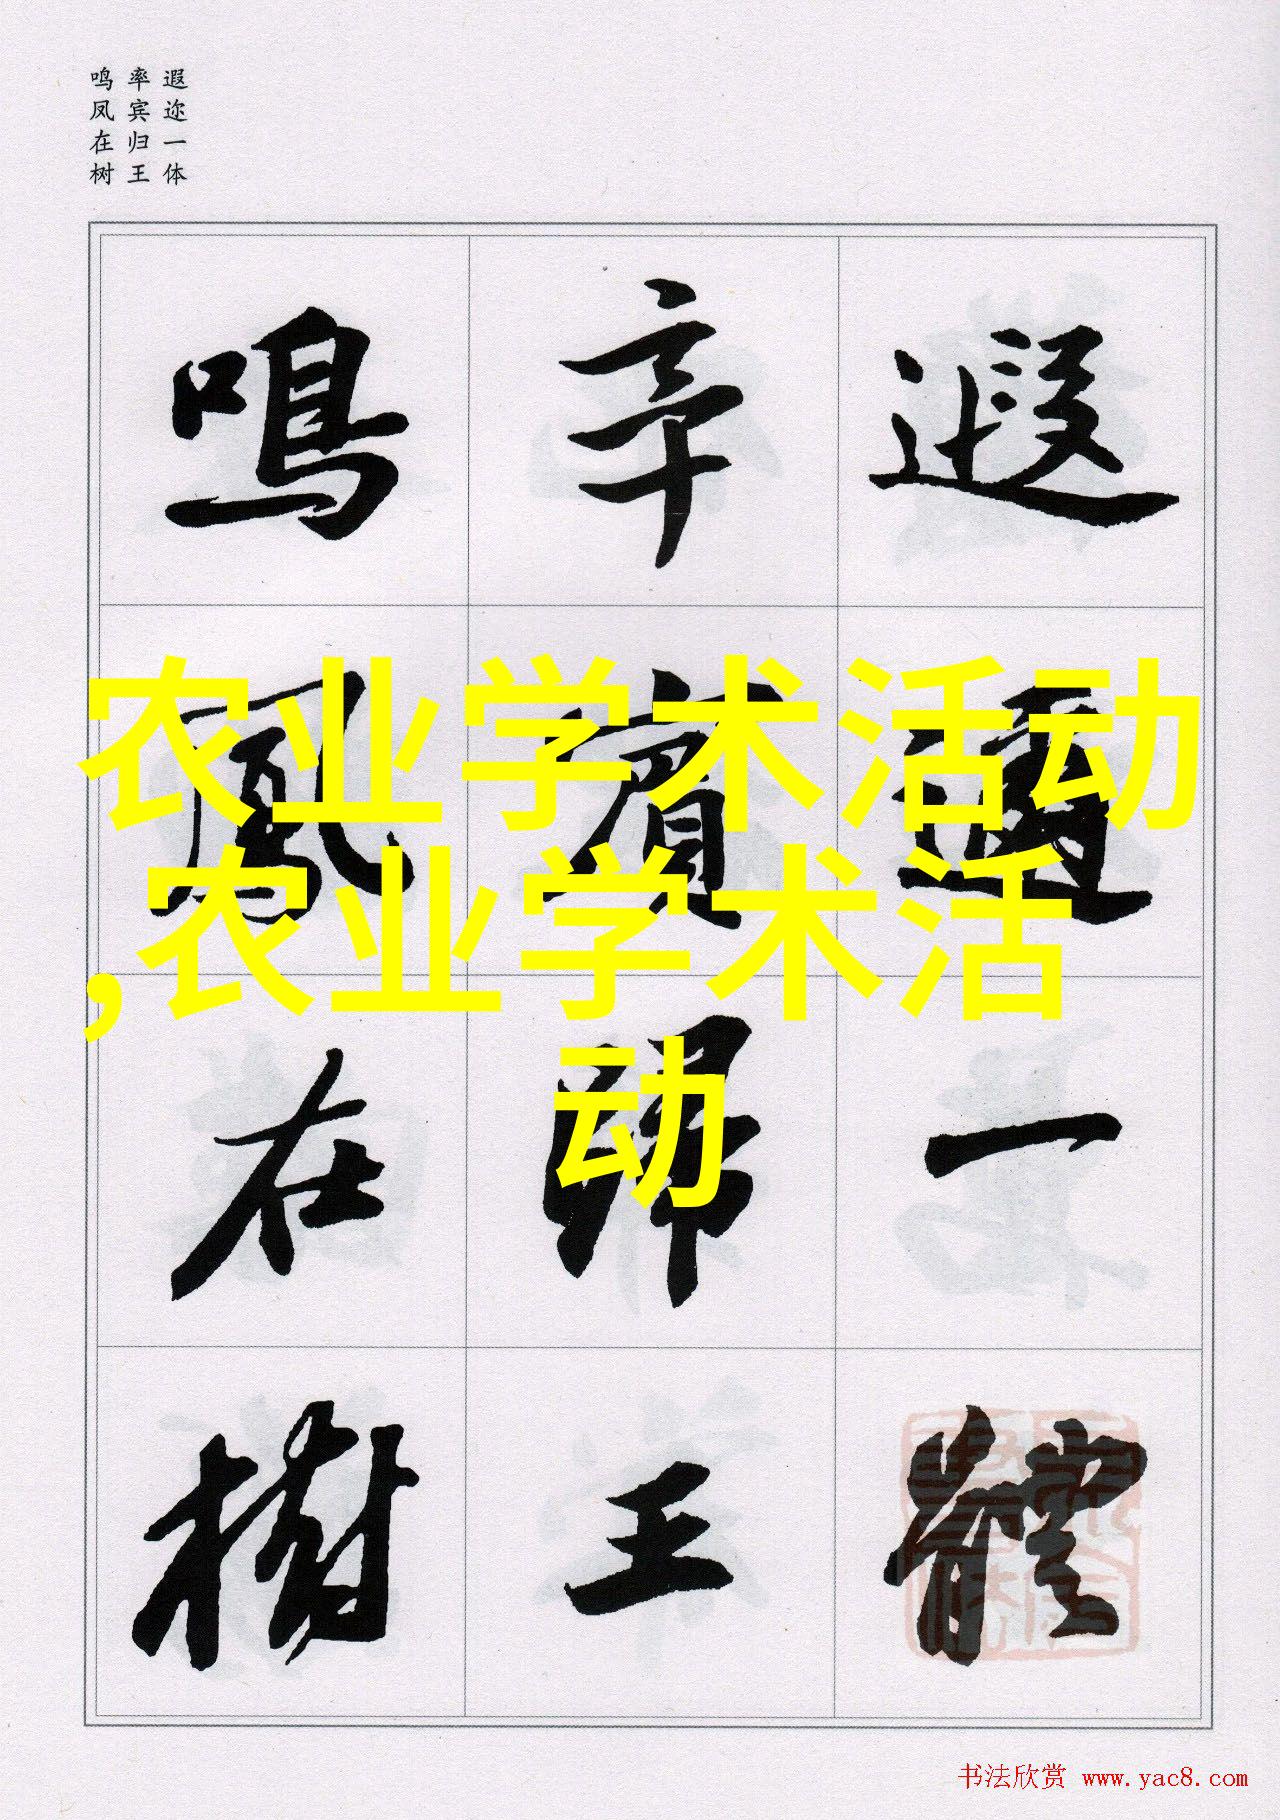 遐迩一体
率宾归王
鸣凤在树
遐邇一體
率賓歸王
鳴鳳在樹
农业学术活动
,农业学术活
动
书法欣赏 www.yac8.com